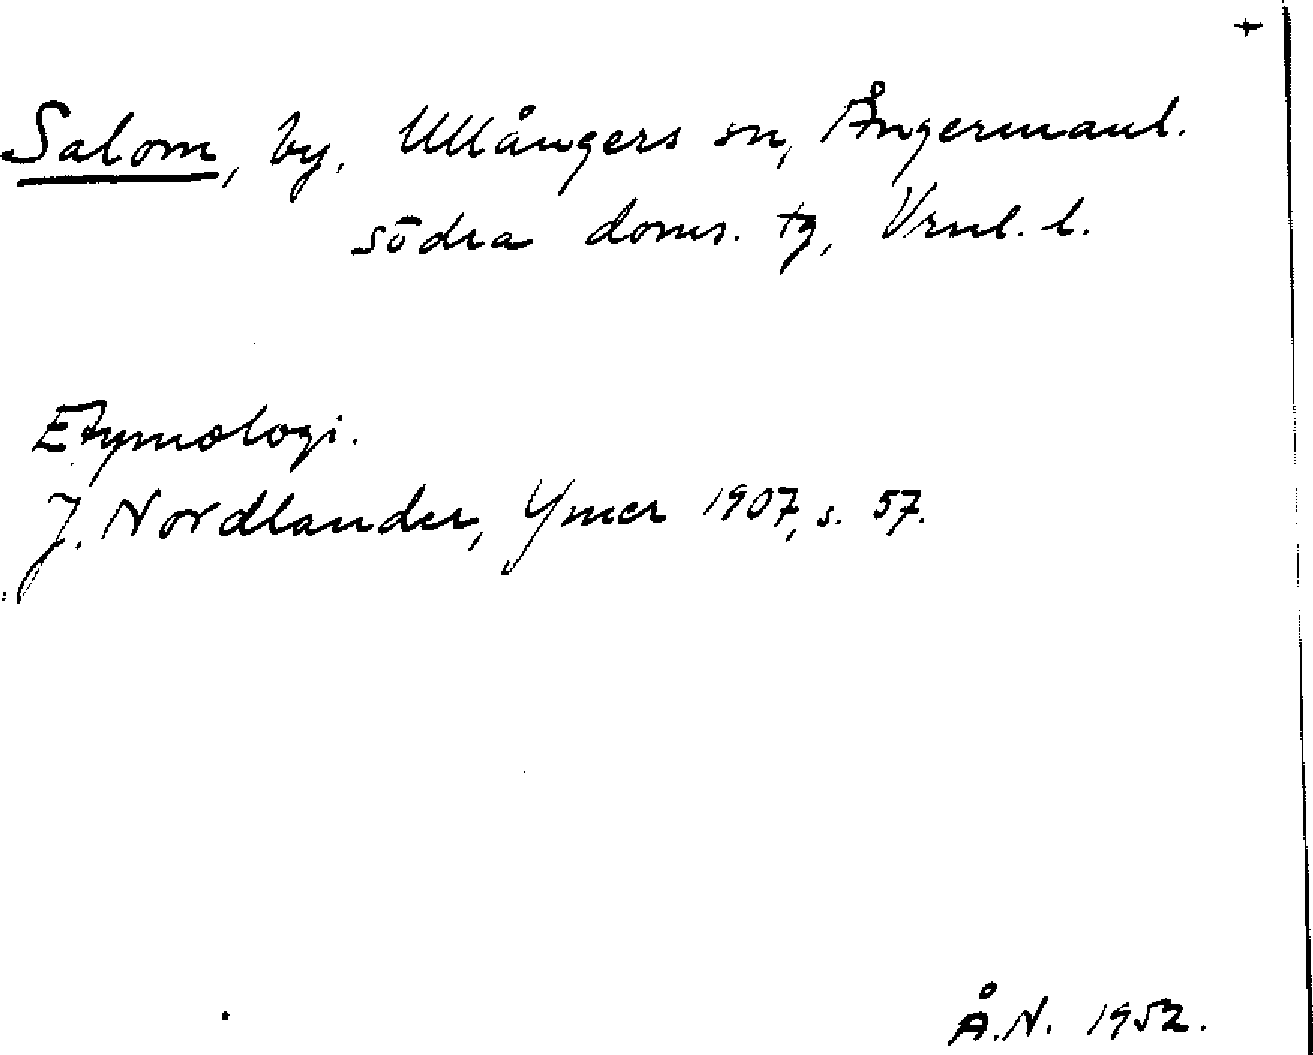 +
Salom, by, Ullångers sn, Ångermanl.
södra doms. tg, Vrnl. l.
Etymologi.
J. Nordlander, Ymer 1907, s. 57.
Å.N. 1952.